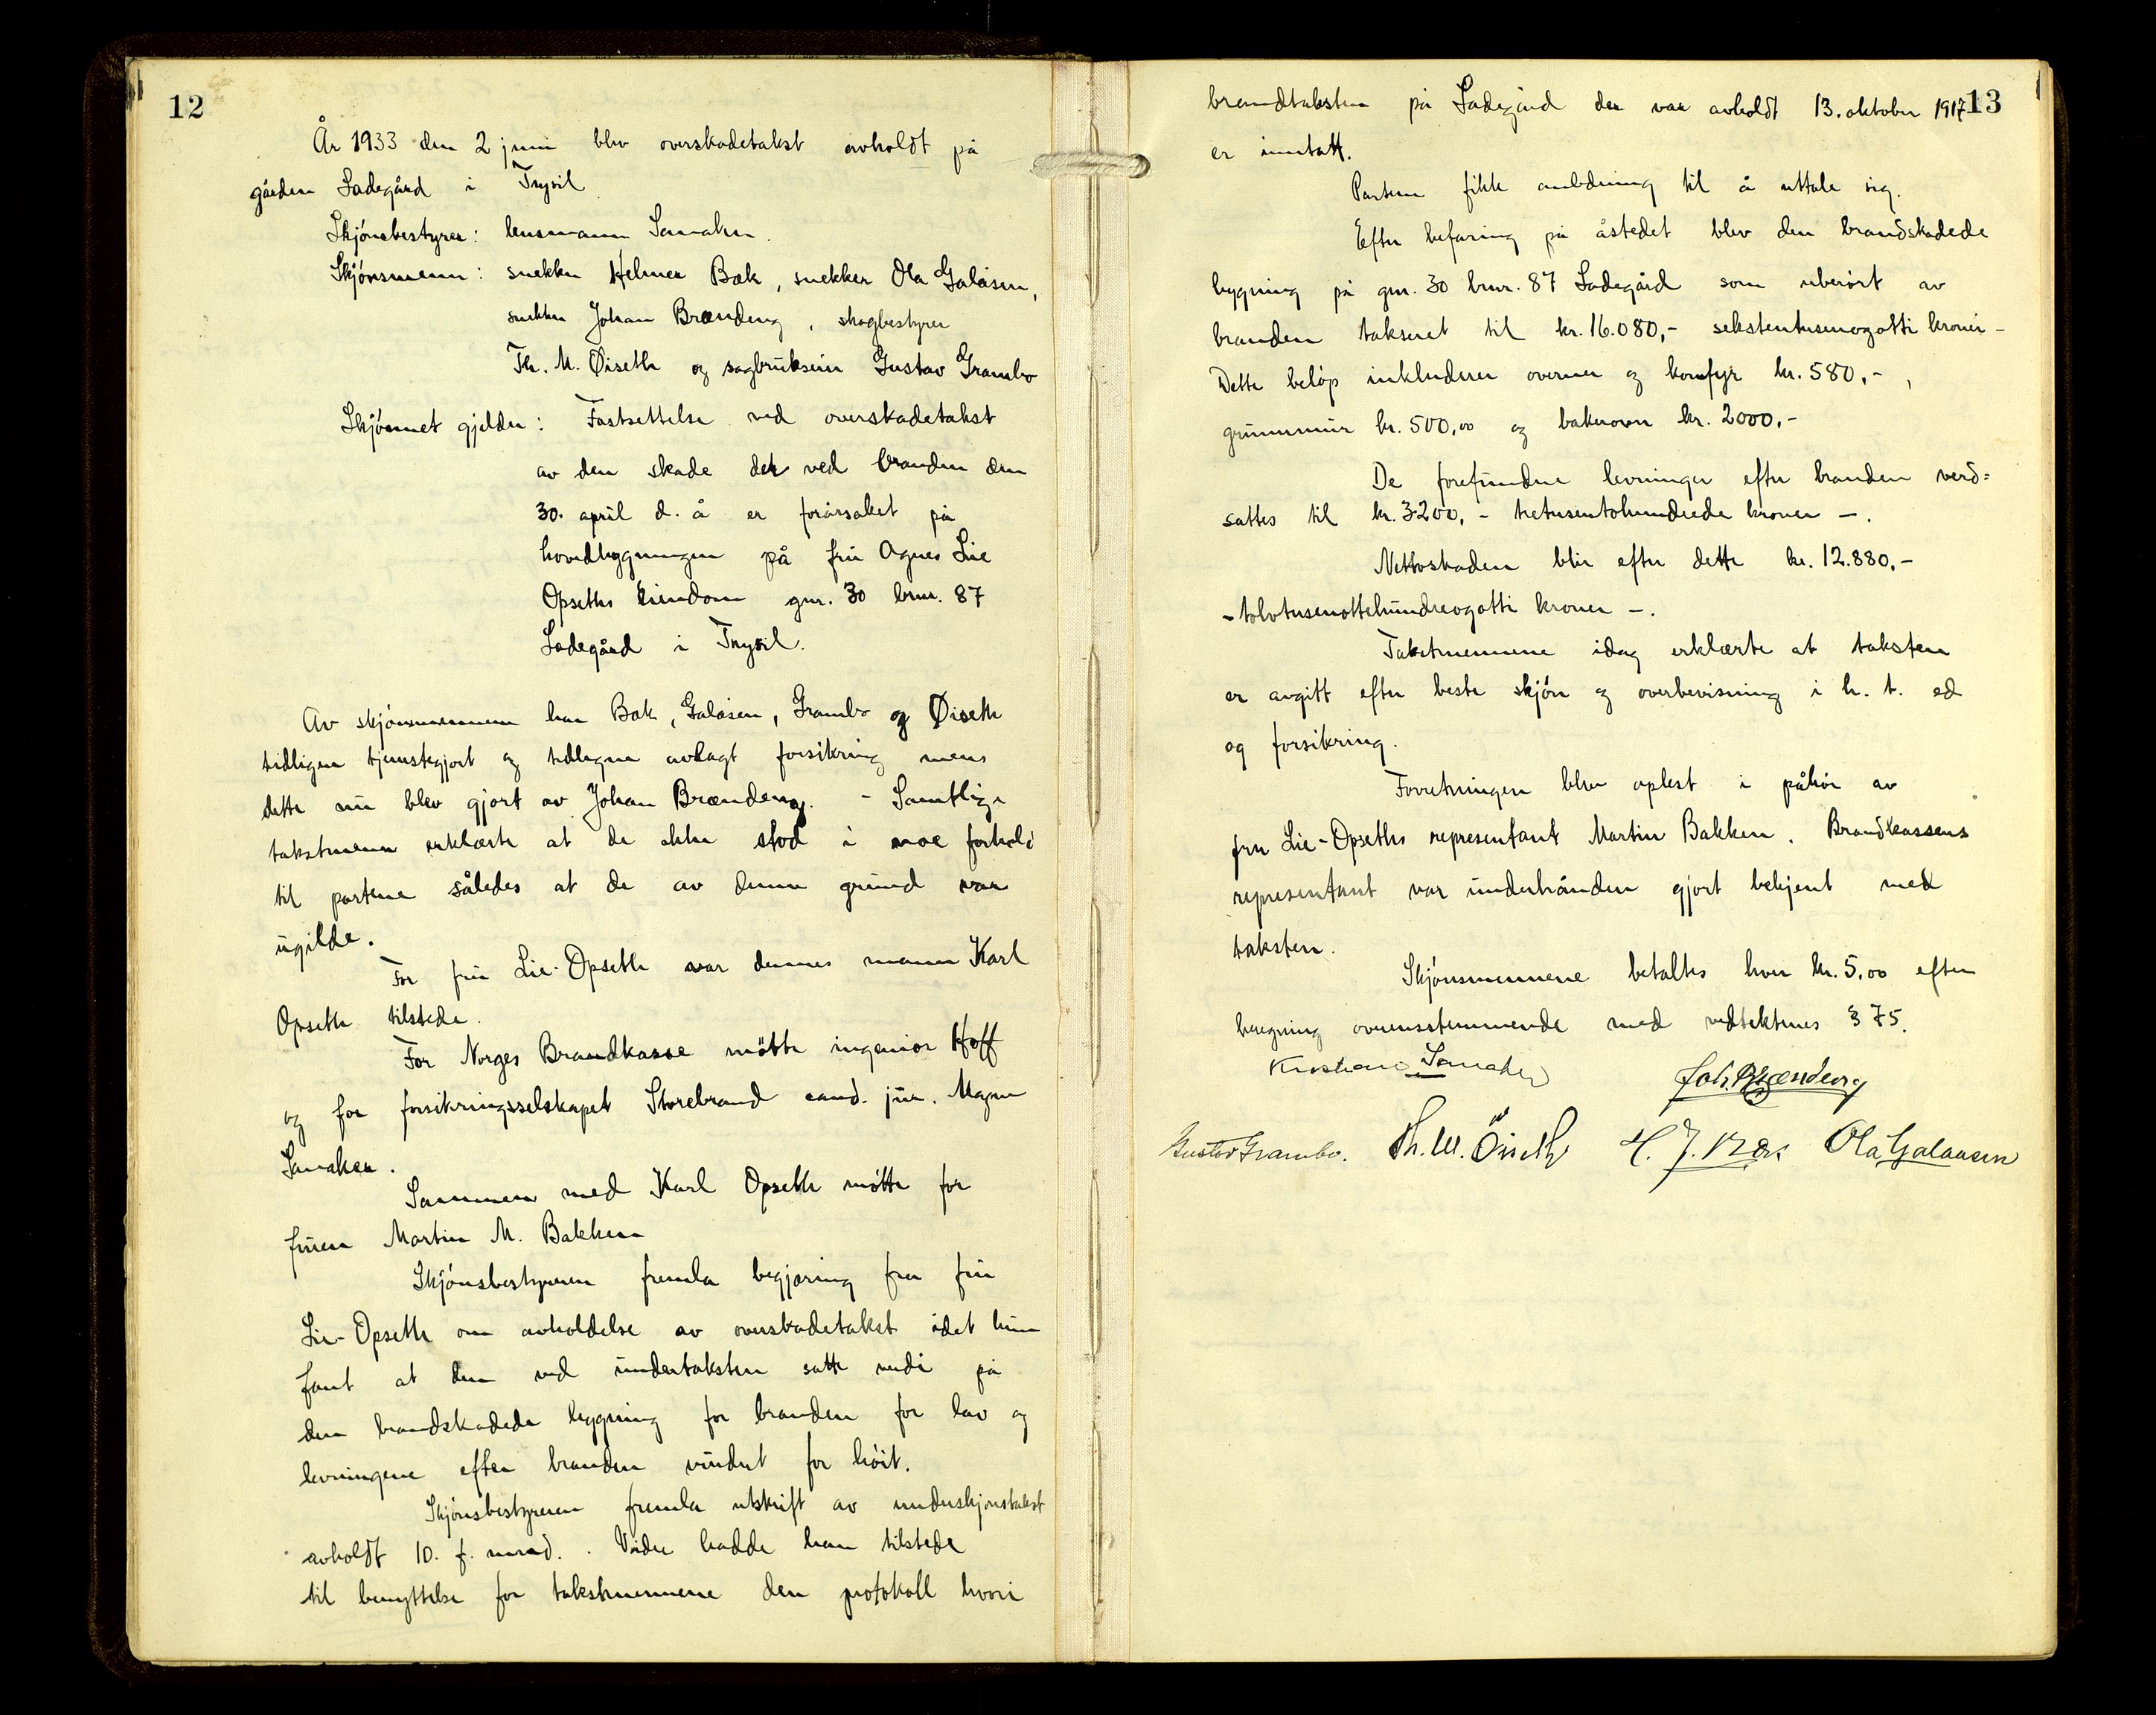 12
År 1933 den 2 juni blev overskadetakst avholdt på
gården Ladegård i Trysil.
Skjønsbestyrer: lensmann Samaken.
Skjønsmenn: snekker Helmer Bæk, snekker Ola Galåsen,
snekker Johan Brændeng, skogbestyrer
Th. M. Øiseth og sagbrukseier Gustav Grambo
Skjønnet gjelder: Fastsettelse ved overskadetakst
av den skade der ved branden den
30. april d. å er forårsaket på
hovedbygningen på fru Agnes Lie
Opseths eiendom gnr. 30 brnr. 87
Ladegård i Trysil.
Av skjønsmennene har Bæk, Galåsen, Grambo og Øiseth
tidligere tjenstegjort og tidligere avlagt forsikring mens
dette nu blev gjort av Johan Brændeng. - Samtlige
takstmenn erklærte at de ikke stod i noe forhold
til partene således at de av denne grund var
ugilde.
For fru Lie-Opseth var dennes mann Karl
Opseth tilstede.
For Norges Brandkasse møtte ingeniør Hoff
og for forsikringsselskapet Storebrand cand. jur. Magne
Samaken.
Sammen med Karl Opseth møtte for
fruen Martin M. Bakken
Skjønsbestyreren fremla begjæring fra fru
Lie-Opseth om avholdelse av overskadetakst idet hun
fant at den ved undertaksten satte verdi på
den brandskadede bygning før branden for lav og
levningene efter branden vurdert for høit.
Skjønsbestyreren fremla utskrift av underskjønstakst
avholdt 10. f. mned. . Videre hadde han tilstede
til benyttelse for takstmennene den protokoll hvori
13
brandtaksten på Ladegård der var avholdt 13. oktober 1917
er inntatt.
Partene fikk anledning til å uttale sig.
Efter befaring på åstedet blev den brandskadede
bygning på gnr. 30 brnr. 87 Ladegård som uberørt av
branden taksert til kr. 16.080,- sekstentusenogotti kroner -
Dette beløp inkluderer ovner og komfyr kr. 580,- ,
grunnmur kr. 500,00 og bakerovn kr. 2000,-
De forefundne levninger efter branden verd=
sattes til kr. 3200,- tretusentohundrede kroner -.
Nettoskaden blir efter dette kr. 12.880,-
- tolvtusenottehundreogotti kroner -.
Takstmennene idag erklærte at taksten
er avgitt efter beste skjøn og overbevisning i h. t. ed
og forsikring.
Forretningen blev oplest i påhør av
fru Lie-Opseths representant Martin Bakken. Brandkassens
representant var underhånden gjort bekjent med
taksten.
Skjønsmennene betaltes hver kr. 5,00 efter
beregning overensstemmende med vedtektenes § 75.
Kristian Samaken
Joh. Brændeng
Gustav Grambo. Th. M. Øiseth H. J. Bæk Ola Galaasen